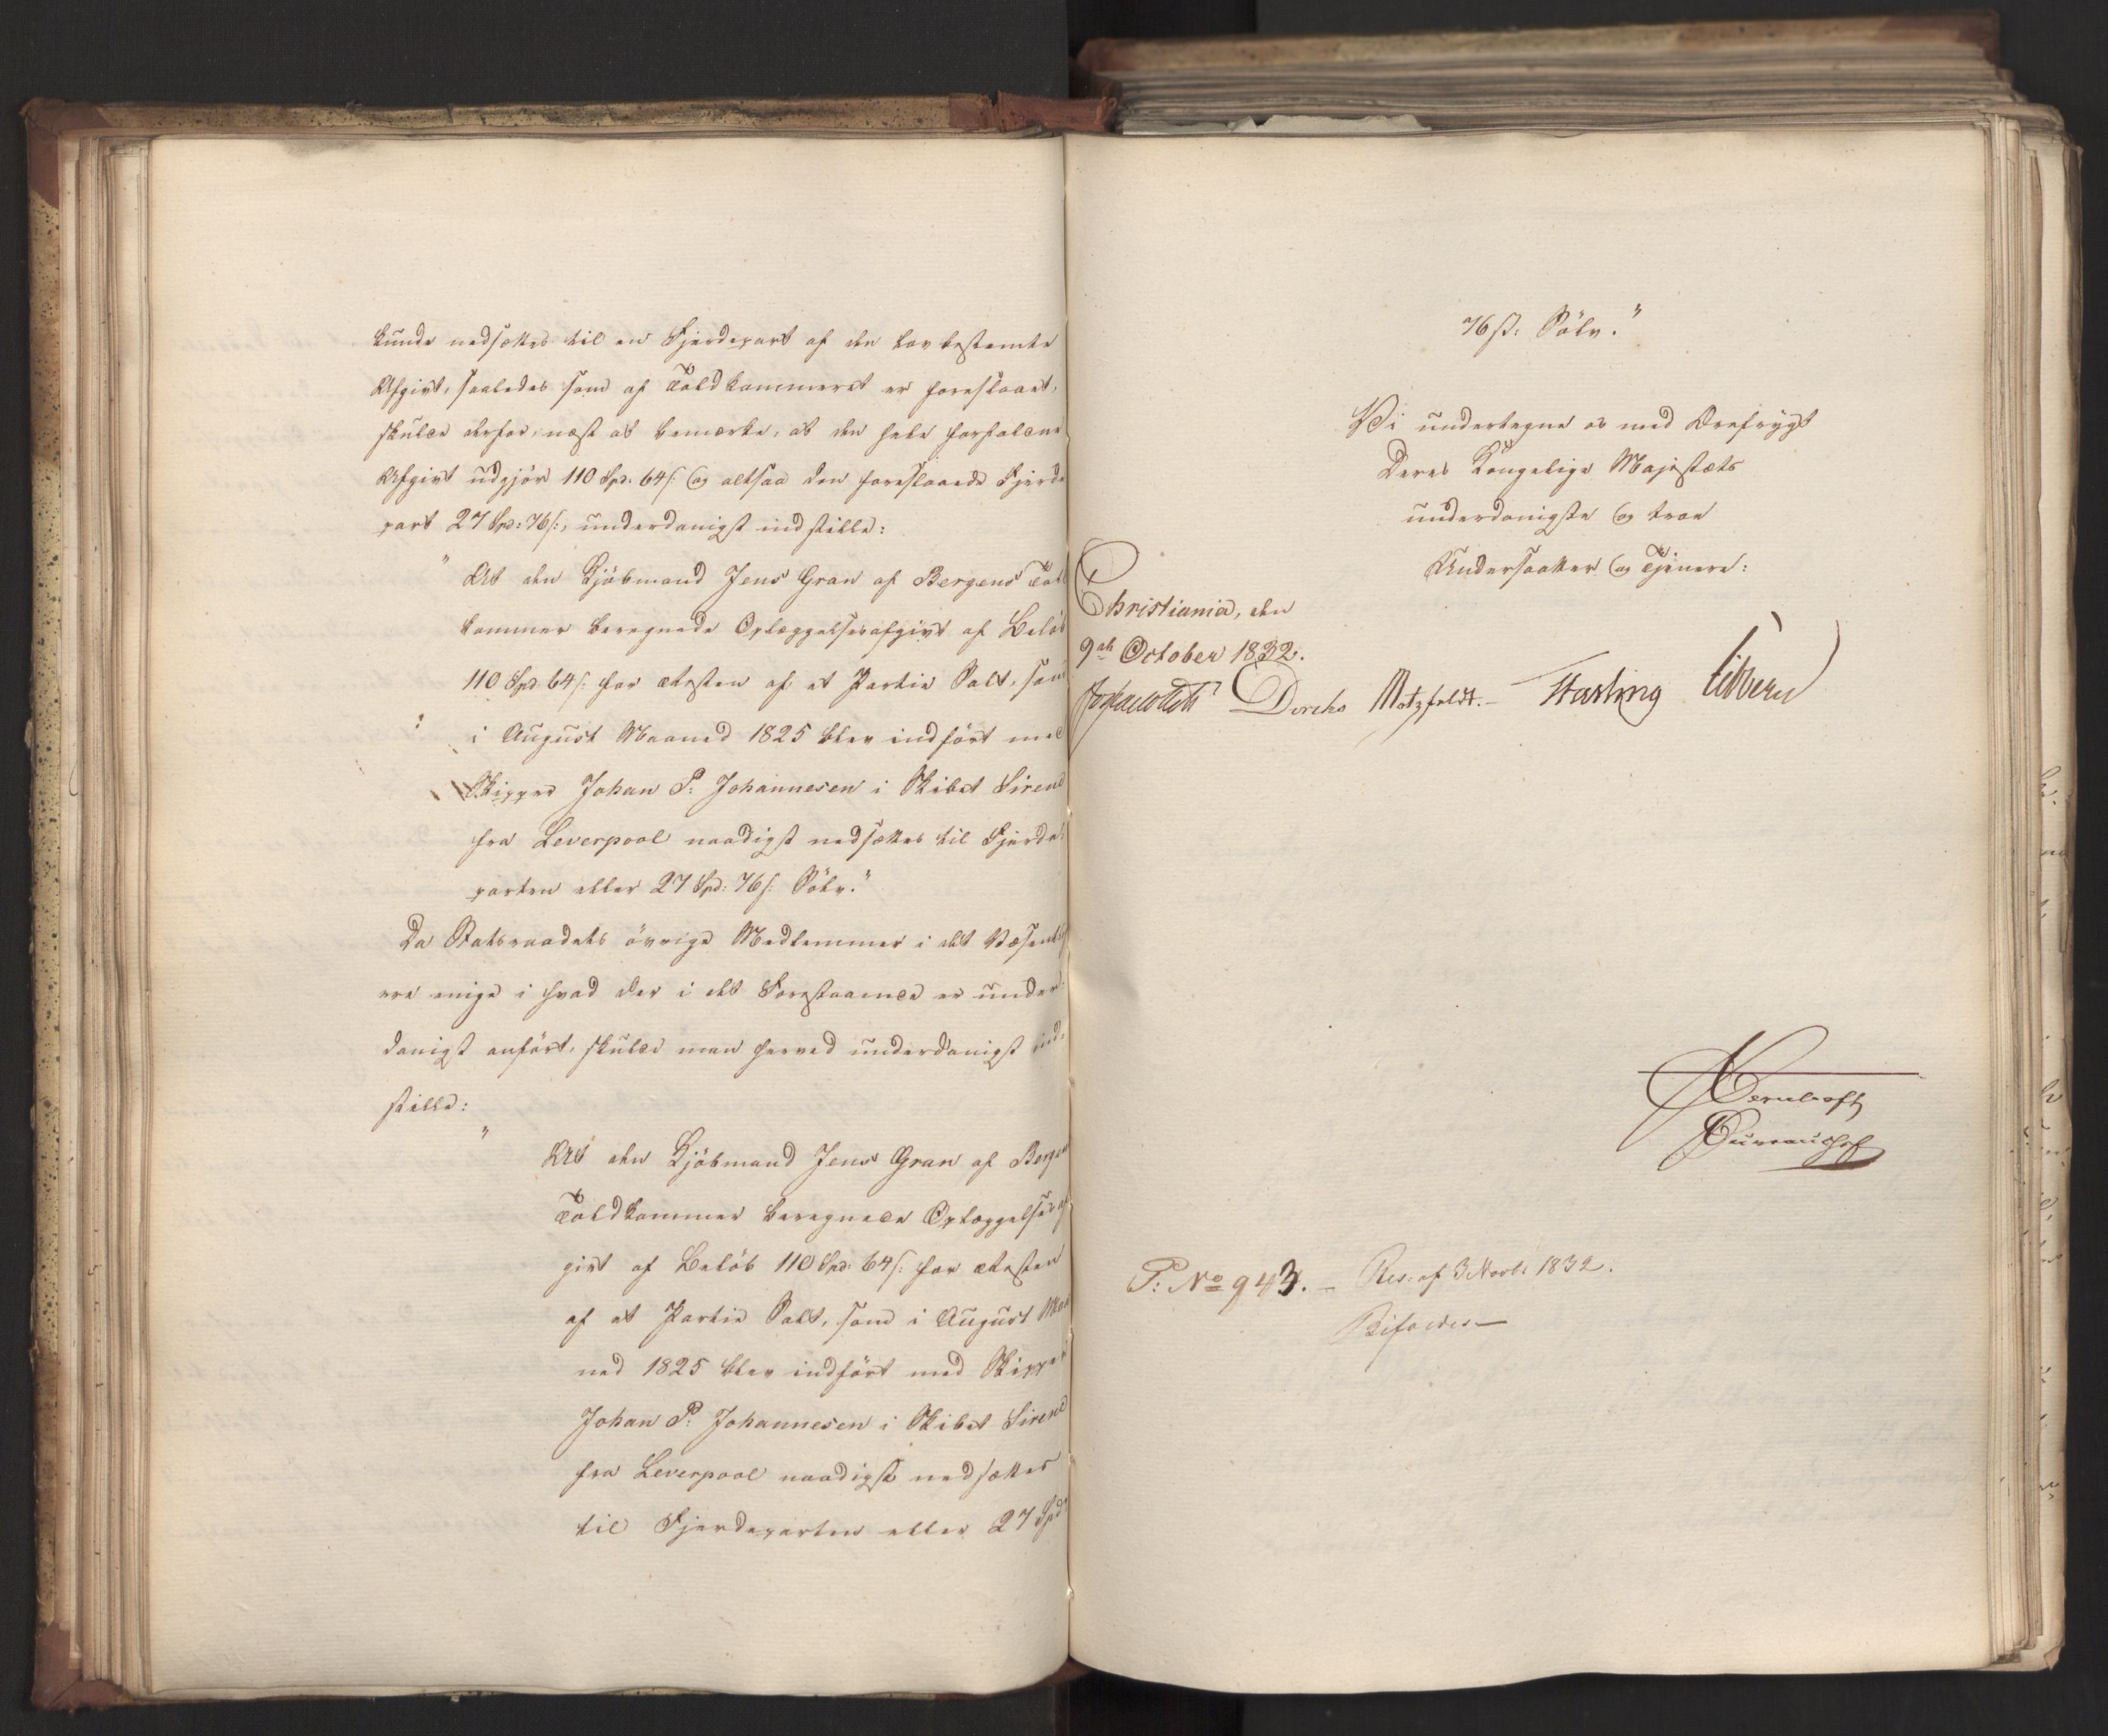 kunde nedsættes til en Fjerdepart af den lovbestemte
Afgivt, saaledes som af Toldkammeret er foreslaaet,
skulde derfor, næst at bemærke, at den hele forfaldne
Afgivt udgjør 110 Spd. 64 s: og altsaa den foreslaaede Fjerde
part 27 Spd: 76 s:, underdanigst indstille:
"At den Kjöbmand Jens Gran af Bergens Told
kammer beregnede Oplæggelsesafgivt af Belöb
110 Spd. 64 s: for Resten af et Partie Salt, som
i August Maaned 1825 blev indfört med
Skipper Johan P: Johannesen i Skibet Sirene
fra Leverpool naadigst nedsættes til Fjerde-
parten eller 27 Spd: 76 s: Sölv."
Da Statsraadets övrige Medlemmer i det Væsentlige
ere enige i hvad der i det Forestaaende er under-
danigst anfört, skulde man herved underdanigst ind-
stille:
"At den Kjöbmand Jens Gran af Bergens
Toldkammer beregnede Oplæggelsesaf
givt af Belöb 110 Spd: 64 s: for Resten
af et Partie Salt, som i August Maa
ned 1825 blev indfört med Skipper
Johan P: Johannesen i Skibet Sirene
fra Leverpool naadigst nedsættes
til Fjerdeparten eller 27 Spd:
76 s: Sölv."
Vi undertegne os med Ærefrygt
Deres Kongelige Majestæts
underdanigste og troe
Undersaatter og Tjenere:
Christiania, den
9de October 1832.
Diriks Motzfeldt. Fasting Sibbern
Bureauchef
P: No 943. – Res: af 3 Novbr 1832.
Bifaldes –